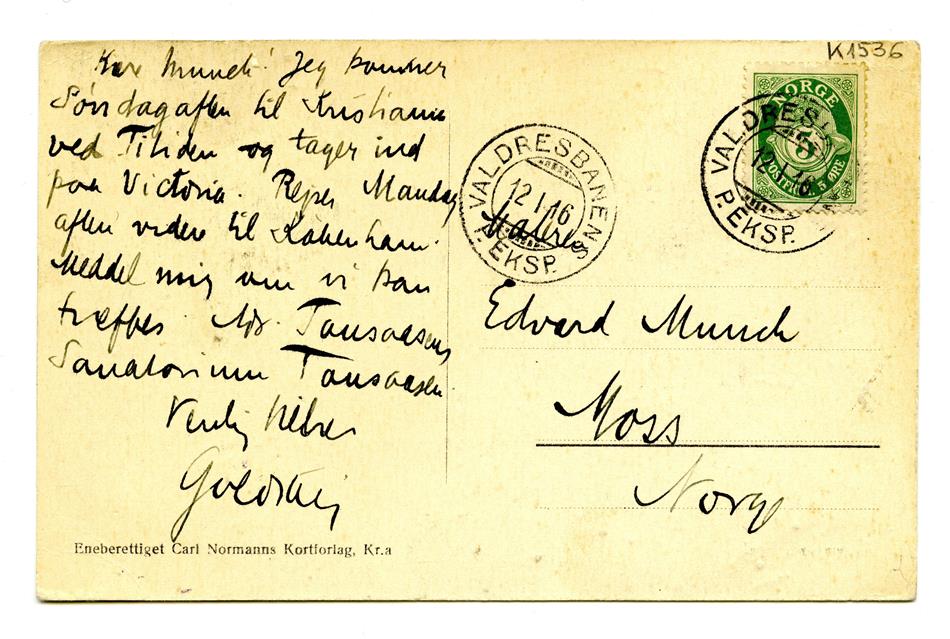 K1536
Kære Munch! Jeg kommer
Søndagaften til Kristiania
ved Titiden og tager ind
paa Victoria. Rejser Mandag
aften videre til København.
Meddel mig om vi kan
træffes. Adr. Tonsaasens
Sanatorium Tonsaasen
Venlig Hilsen
Goldstein
Eneberettiget Carl Normanns Kortforlag, Kr.a
NORGE
5
POSTFRIM. 5 ØRE
VALDRESBANENS
12 I 16
P. EKSP.
VALDRES
12 I 16
P. EKSP.
Maleren
Edvard Munch
Moss
Norge